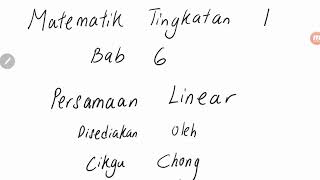 Matematik Tingkatan 1
Bab 6
Persamaan Linear
Disediakan Oleh
Cikgu Chong